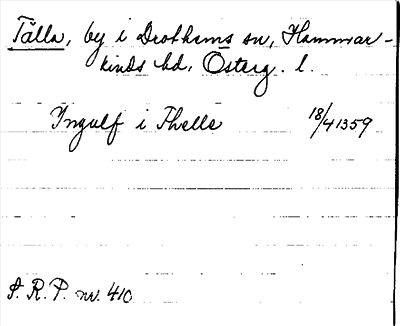 Tälla, by i Drothems sn, Hammar-
kinds hd, Österg. l.
Ingulf i Thella 18/4 1359
S. R. P. nr. 410